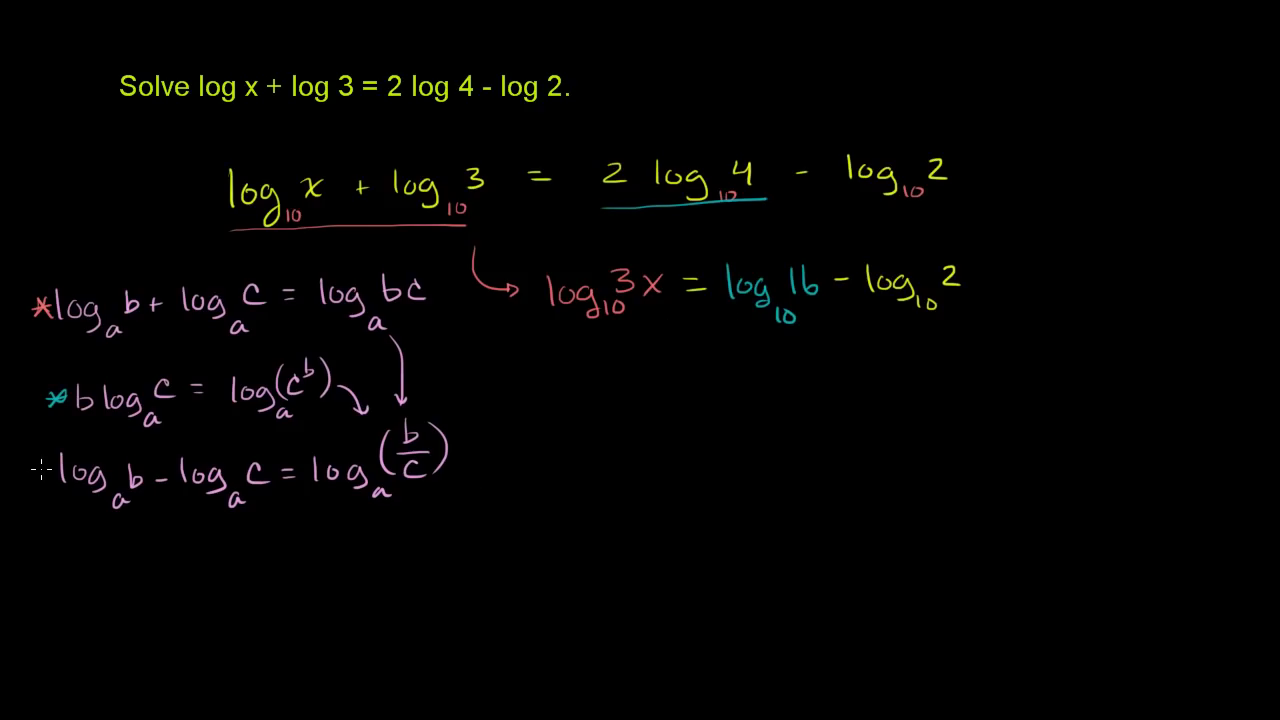 Solve log x + log 3 = 2 log 4 - log 2.
log₁₀ x + log₁₀ 3 = 2 log₁₀ 4 - log₁₀ 2
log₁₀ 3x = log₁₀ 16 - log₁₀ 2
*logₐ b + logₐ c = logₐ bc
*b logₐ c = logₐ (cᵇ)
logₐ b - logₐ c = logₐ (b/c)